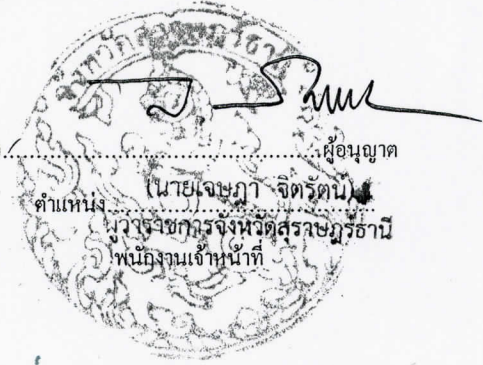 จังหวัดสุราษฎร์ธานี
ผู้อนุญาต
(นายเจษฎา จิตรัตน์)
ตำแหน่ง
ผู้ว่าราชการจังหวัดสุราษฎร์ธานี
พนักงานเจ้าหน้าที่